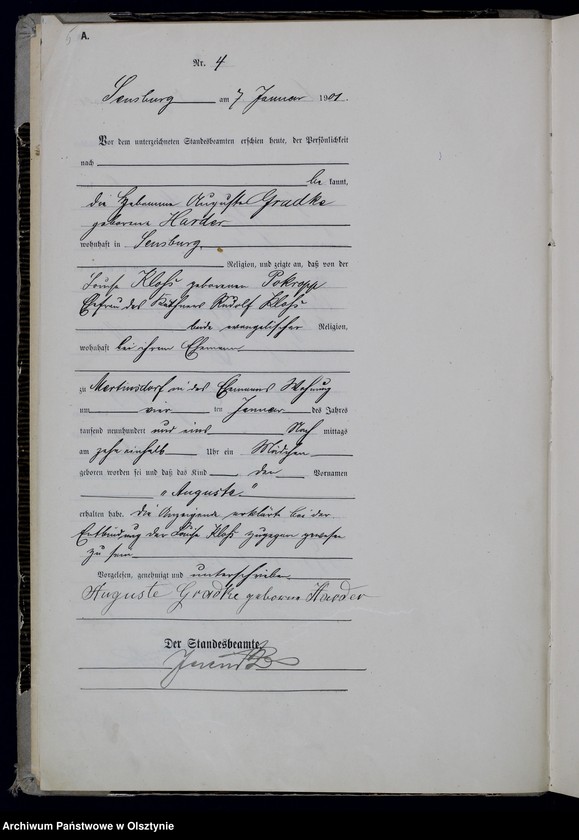 A.
Nr. 4
Sensburg am 7 Januar 1901.
Vor dem unterzeichneten Standesbeamten erschien heute, der Persönlichkeit
nach
be kannt,
die Hebamme Auguste Gradke
geborene Harder
wohnhaft in Sensburg,
Religion, und zeigte an, daß von der
Louise Kloss geborenen Pokropp
Ehefrau des Käthners Rudolf Kloss
beide evangelischer Religion,
wohnhaft bei ihrem Ehemann
zu Mertinsdorf in des Ehemanns Wohnung
am vier ten Januar des Jahres
tausend neunhundert und eins Nach mittags
um zehn einhalb Uhr ein Mädchen
geboren worden sei und daß das Kind den Vornamen
"Auguste"
erhalten habe. Die Anzeigende erklärte bei der
Entbindung der Louise Kloss zugegen gewesen
zu sein
Vorgelesen, genehmigt und unterschrieben
Auguste Gradke geborene Harder
Der Standesbeamte
Archiwum Państwowe w Olsztynie